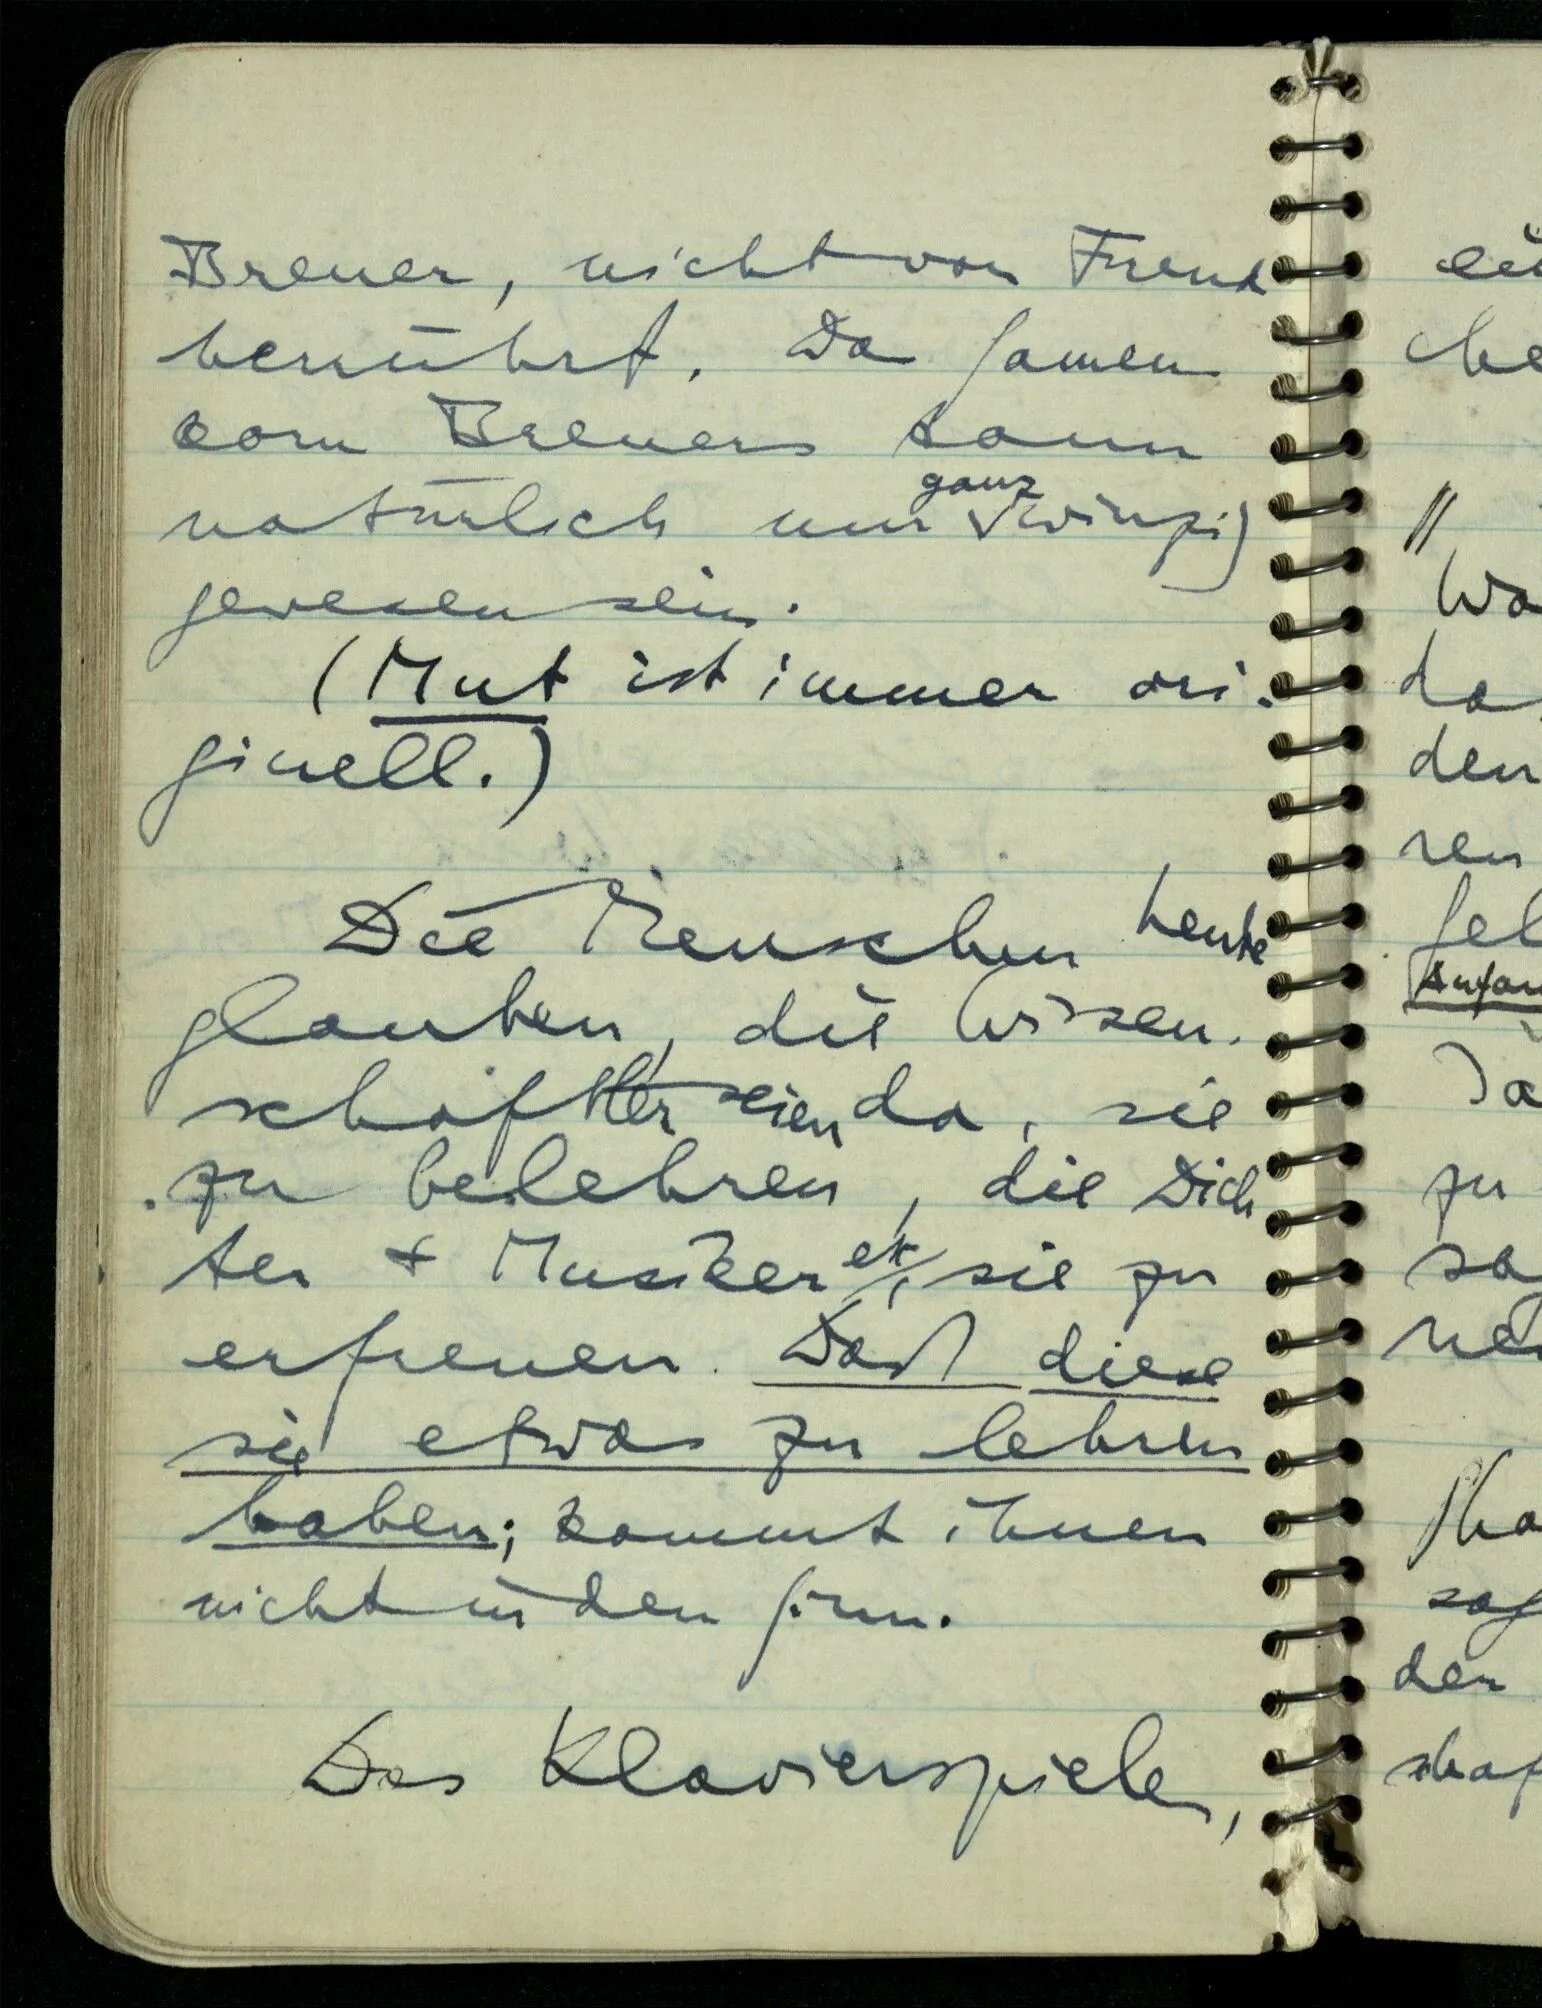 Breuer, nicht von Freud
herrührt. Das Samen
korn Breuers kann
natürlich nur ganz winzig
gewesen sein.
(Mut ist immer ori-
ginell.)
Die Menschen heute
glauben, die Wissen-
schaftler seien da, sie
zu belehren, die Dich
ter & Musiker etc, sie zu
erfreuen. Daß diese
sie etwas zu lehren
haben; kommt ihnen
nicht in den Sinn.
Das Klavierspielen,
zu
den